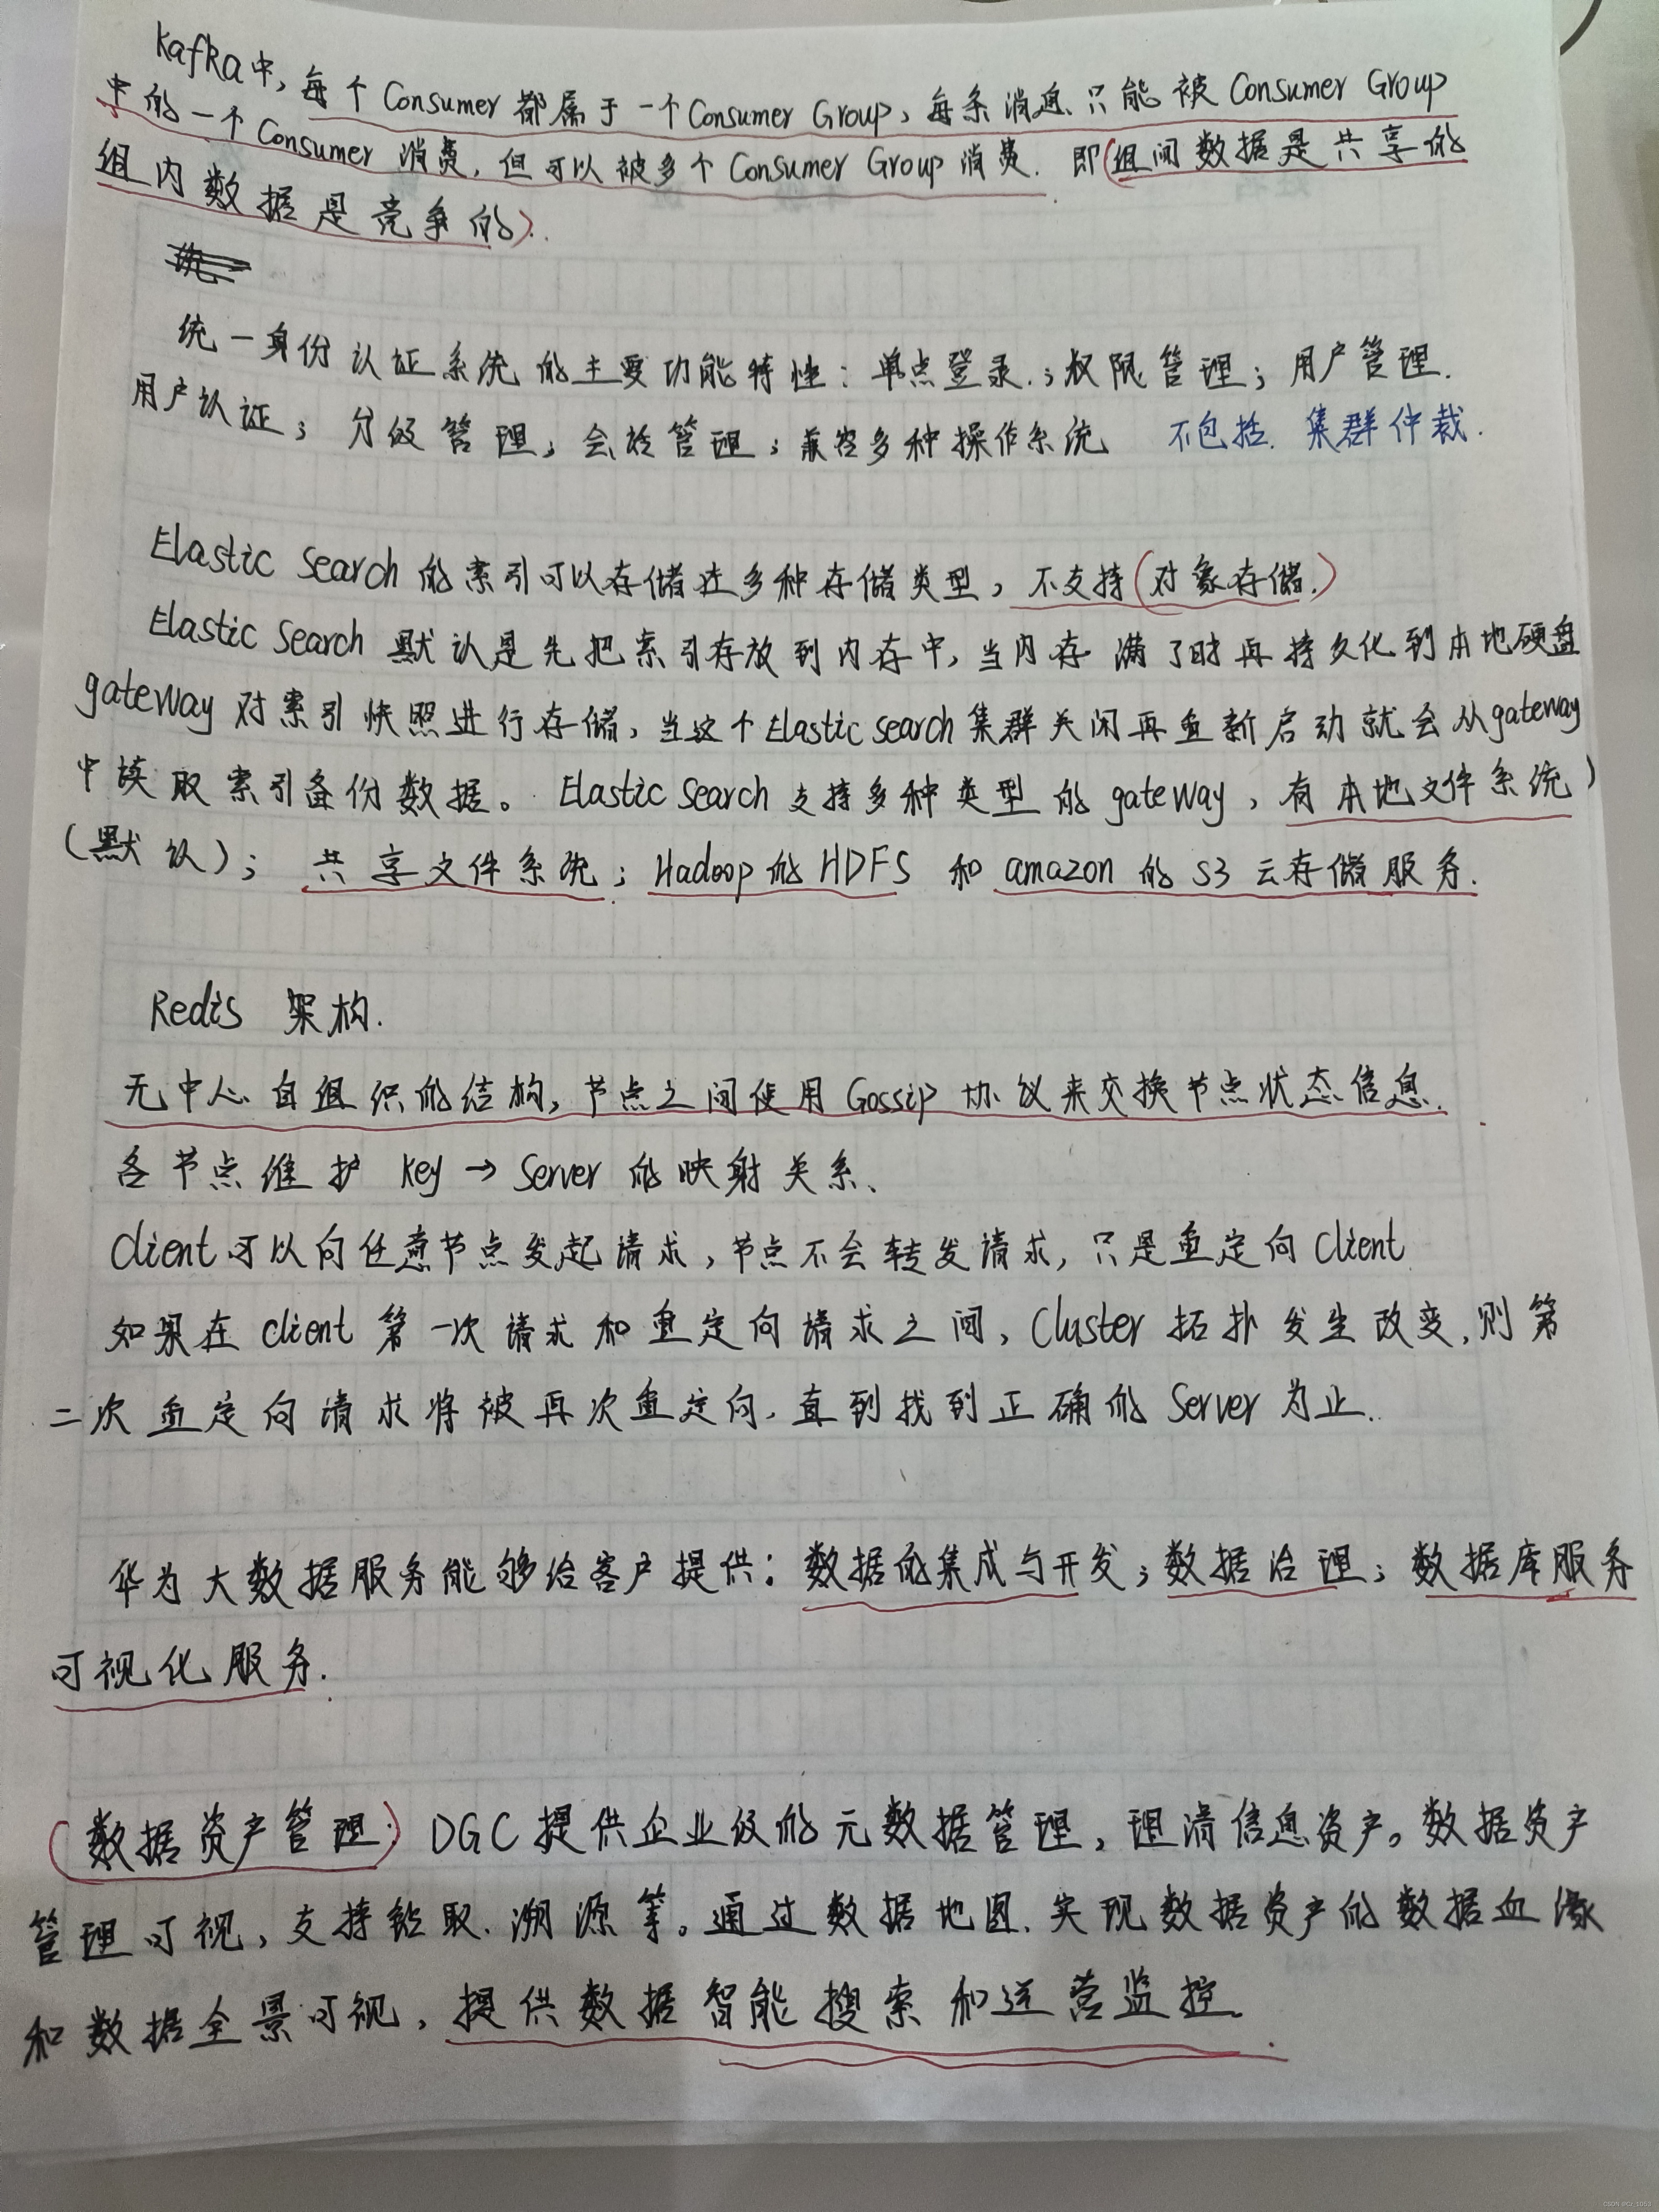 Kafka中，每个Consumer都属于一个Consumer Group，每条消息只能被Consumer Group
中的一个Consumer 消费，但可以被多个Consumer Group 消费. 即(组间数据是共享的
组内数据是竞争的).
统一身份认证系统的主要功能特性：单点登录.；权限管理；用户管理.
用户认证；分级管理；会话管理；兼容多种操作系统 不包括. 集群仲裁.
Elastic Search 的索引可以存储在多种存储类型，不支持(对象存储.)
Elastic Search 默认是先把索引存放到内存中，当内存满了时再持久化到本地硬盘
gateway 对索引快照进行存储，当这个Elastic search 集群关闭再重新启动就会从gateway
中读取索引备份数据。Elastic Search 支持多种类型的gateway，有本地文件系统
(默认)；共享文件系统；Hadoop的HDFS 和 amazon的S3云存储服务.
Redis 架构.
无中心自组织的结构，节点之间使用Gossip 协议来交换节点状态信息.
各节点维护 Key → Server 的映射关系、
Client可以向任意节点发起请求，节点不会转发请求，只是重定向Client
如果在client 第一次请求和重定向请求之间，Cluster 拓扑发生改变，则第
二次重定向请求将被再次重定向，直到找到正确的Server为止.
华为大数据服务能够给客户提供：数据的集成与开发；数据治理；数据库服务
可视化服务.
(数据资产管理) DGC提供企业级的元数据管理，理清信息资产。数据资产
管理可视，支持钻取、溯源等。通过数据地图、实现数据资产的数据血缘
和数据全景可视，提供数据智能搜索和运营监控.